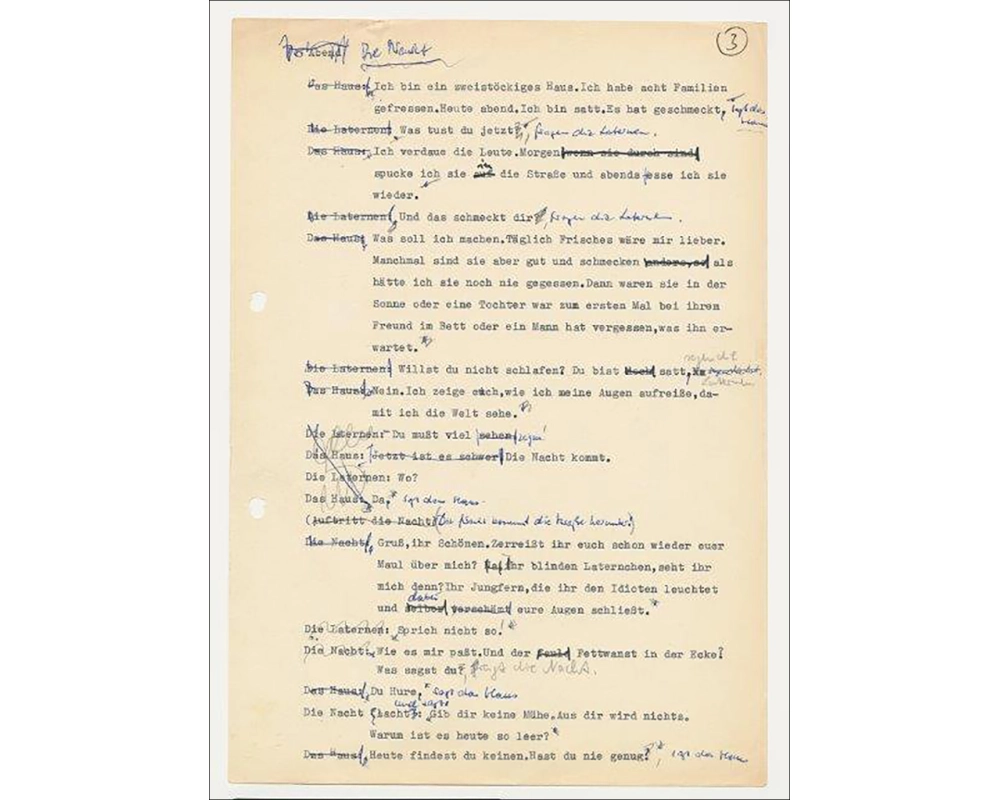 3
Abend Die Nacht
Das Haus: Ich bin ein zweistöckiges Haus.Ich habe acht Familien
gefressen.Heute abend.Ich bin satt.Es hat geschmeckt, sagt das
Haus
Die Laternen: Was tust du jetzt?, fragen die Laternen.
Das Haus: Ich verdaue die Leute.Morgen wenn sie durch sind
spucke ich sie auf in die Straße und abends esse ich sie
wieder.
Die Laternen: Und das schmeckt dir, fragen die Laternen.
Das Haus: Was soll ich machen.Täglich Frisches wäre mir lieber.
Manchmal sind sie aber gut und schmecken anders,so als
hätte ich sie noch nie gegessen.Dann waren sie in der
Sonne oder eine Tochter war zum ersten Mal bei ihrem
Freund im Bett oder ein Mann hat vergessen,was ihn er-
wartet.
Die Laternen: Willst du nicht schlafen? Du bist satt,
Das Haus: Nein.Ich zeige euch,wie ich meine Augen aufreiße,da-
mit ich die Welt sehe.
Die Laternen: Du mußt viel sehen
Das Haus: Jetzt ist es schwer Die Nacht kommt.
Die Laternen: Wo?
Das Haus: Da, sagt das Haus.
(Auftritt die Nacht) die Straße herunter)
Die Nacht: Gruß,ihr Schönen.Zerreißt ihr euch schon wieder euer
Maul über mich? Ihr blinden Laternchen,seht ihr
mich denn?Ihr Jungfern,die ihr den Idioten leuchtet
und dabei selber verschämt eure Augen schließt.
Die Laternen: Sprich nicht so!
Die Nacht: Wie es mir paßt.Und der faule Fettwanst in der Ecke?
Was sagst du?, fragt die Nacht.
Das Haus: Du Hure, sagt das Haus
Die Nacht (lacht): und sagt Gib dir keine Mühe.Aus dir wird nichts.
Warum ist es heute so leer?
Das Haus: Heute findest du keinen.Hast du nie genug?, sagt das Haus